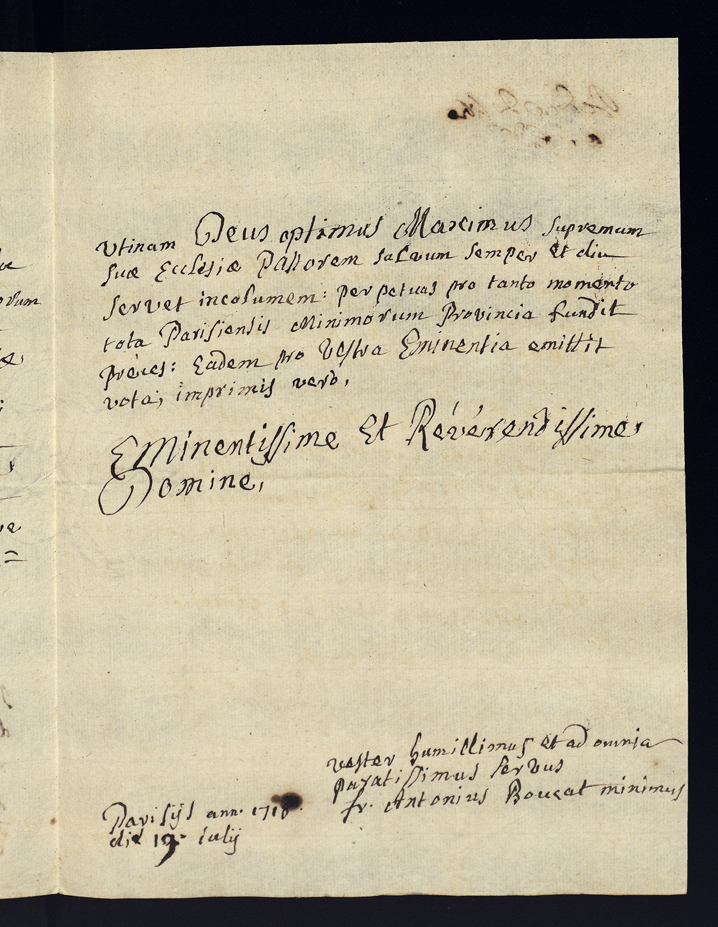 Utinam Deus optimus Maximus supremum
suæ Ecclesiæ Pastorem salvum semper et diu
servet incolumem: perpetuas pro tanto momento
tota Parisiensis Minimorum Provincia fundit
préces: Eadem pro Vestra Eminentia emittit
vota; imprimis vero,
Eminentissime Et Révérendissime,
Domine,
vester humillimus et ad omnia
paratissimus servus
fr. Antonius Boucat minimus
Parisijs ann. 1718.
die 19. iulij